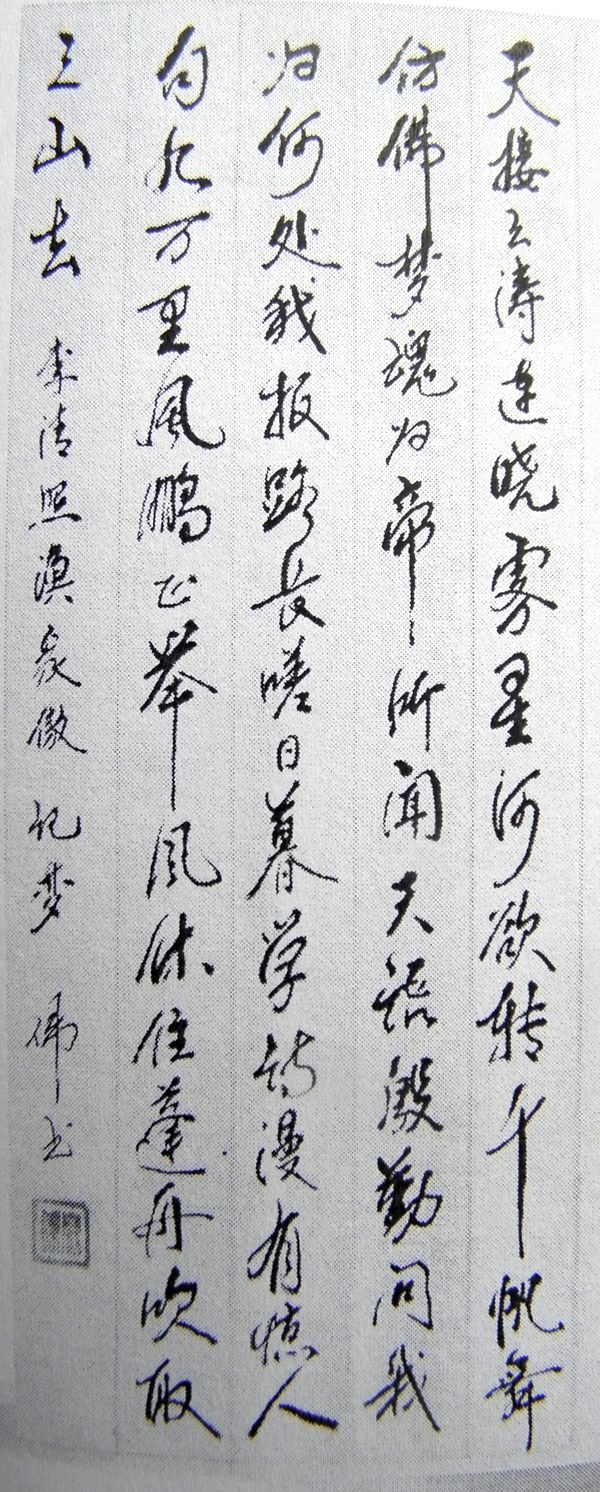 天接云涛连晓雾星河欲转千帆舞
仿佛梦魂归帝所闻天语殷勤问我
归何处我报路长嗟日暮学诗漫有惊人
句九万里風鹏正举风休住蓬舟吹取
三山去 李清照渔家傲 记梦 伟书